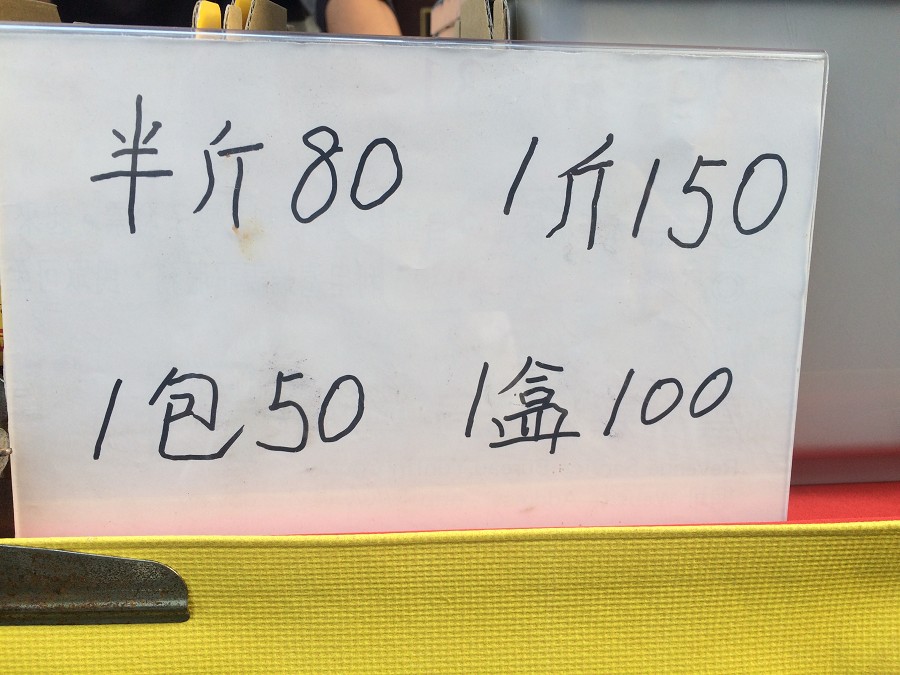 半斤80 1斤150
1包50 1盒100